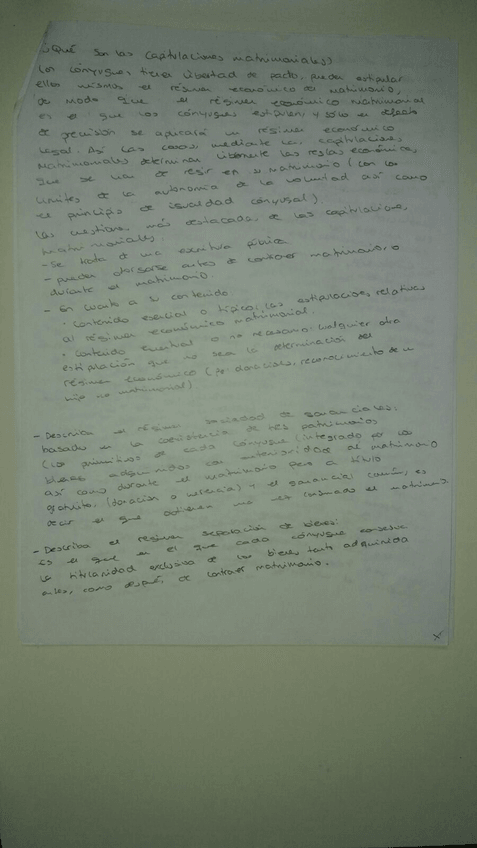 ¿Qué son las capitulaciones matrimoniales?
Los cónyuges, tienen libertad de pacto, pueden estipular
ellos mismos el régimen económico de matrimonio,
de modo que el régimen económico matrimonial
es el que los cónyuges estipulen y sólo en defecto
de previsión se aplicará un régimen económico
legal. Así las cosas mediante las capitulaciones
matrimoniales determinan libremente las reglas económicas
que se han de regir en su matrimonio (con los
límites de la autonomía de la voluntad así como
el principio de igualdad conyugal).
Las cuestiones más destacadas de las capitulaciones
matrimoniales.
- Se trata de una escritura pública
- pueden otorgarse antes de contraer matrimonio o
durante el matrimonio
- En cuanto a su contenido
· Contenido esencial o típico: las estipulaciones relativas
al régimen económico matrimonial.
· Contenido eventual o no necesario: cualquier otra
estipulación que no sea la determinación del
régimen económico (donaciones, reconocimiento de un
hijo no matrimonial)
- Describa el régimen sociedad de gananciales:
basado en la coexistencia de tres patrimonios
(los privativos de cada cónyuge (integrado por los
bienes adquiridos con anterioridad al matrimonio
así como durante el matrimonio pero a título
gratuito, (donación o herencia) y el ganancial común, es
decir el que obtienen una vez el matrimonio
- Describa el régimen separación de bienes:
es el que en el que cada cónyuge conserva
la titularidad exclusiva de los bienes tanto adquiridos
antes, como después de contraer matrimonio.